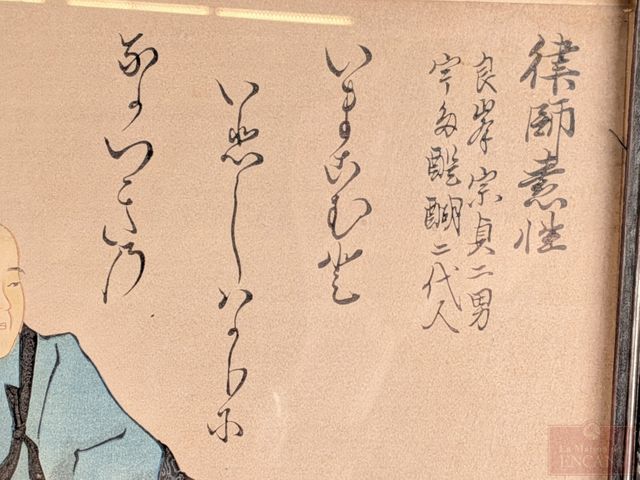 律師素性
良岑宗貞二男
宇多醍醐二代人
いまこむと
いひしはかりに
なかつきの
La Maison
ENCAN